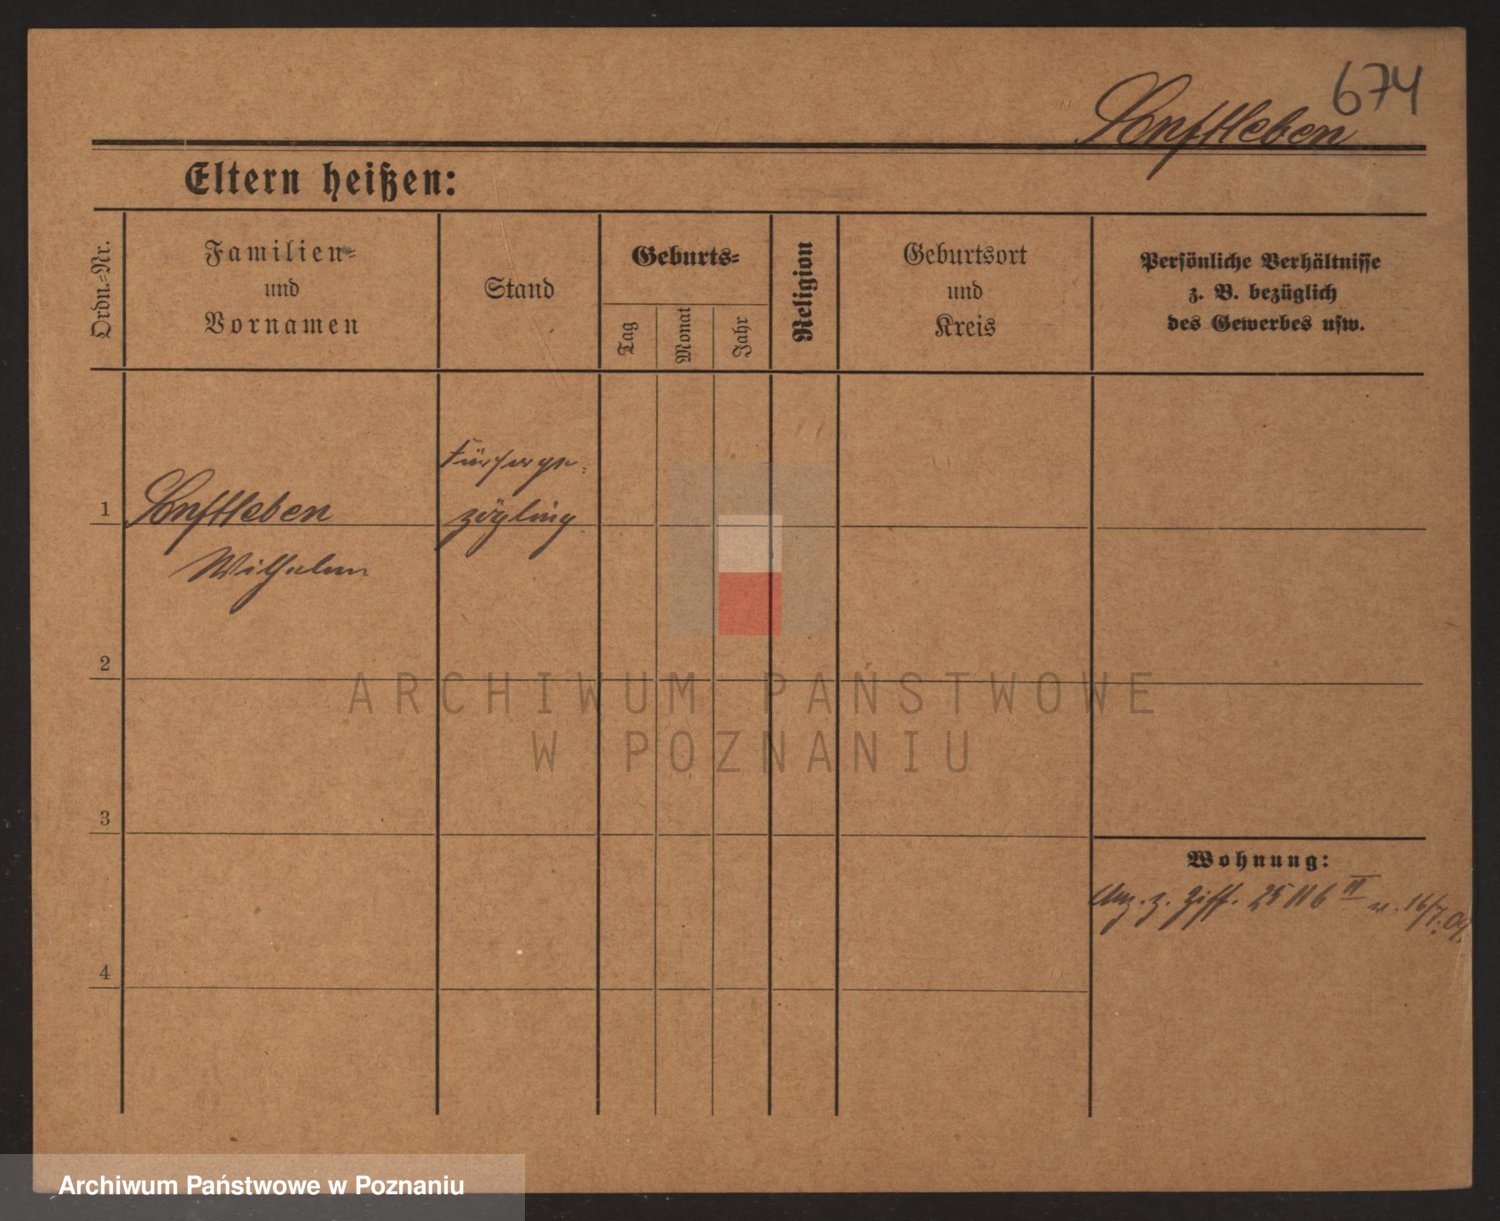 674
Senftleben
Eltern heißen:
Ordn.-Nr.
Familien-
und
Vornamen
Stand
Geburts-
Tag
Monat
Jahr
Religion
Geburtsort
und
Kreis
Persönliche Verhältnisse
z. B. bezüglich
des Gewerbes usw.
1
Senftleben
Wilhelm
Fürsorge-
zögling
2
3
4
Wohnung:
z. Ziff. II v. 16/7.09.
ARCHIWUM PAŃSTWOWE
W POZNANIU
Archiwum Państwowe w Poznaniu